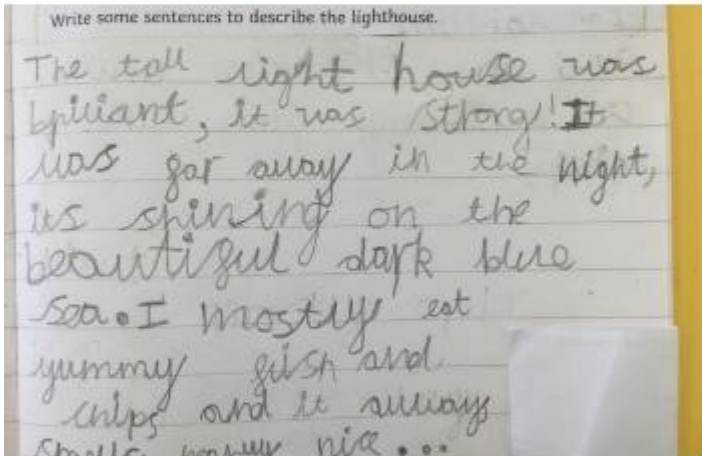 Write some sentences to describe the lighthouse.
The tall light house was
briliant, it was strong! It
was far away in the night,
its shining on the
beautiful dark blue
sea. I mostly eat
yummy fish and
chips and it always
smells nice...